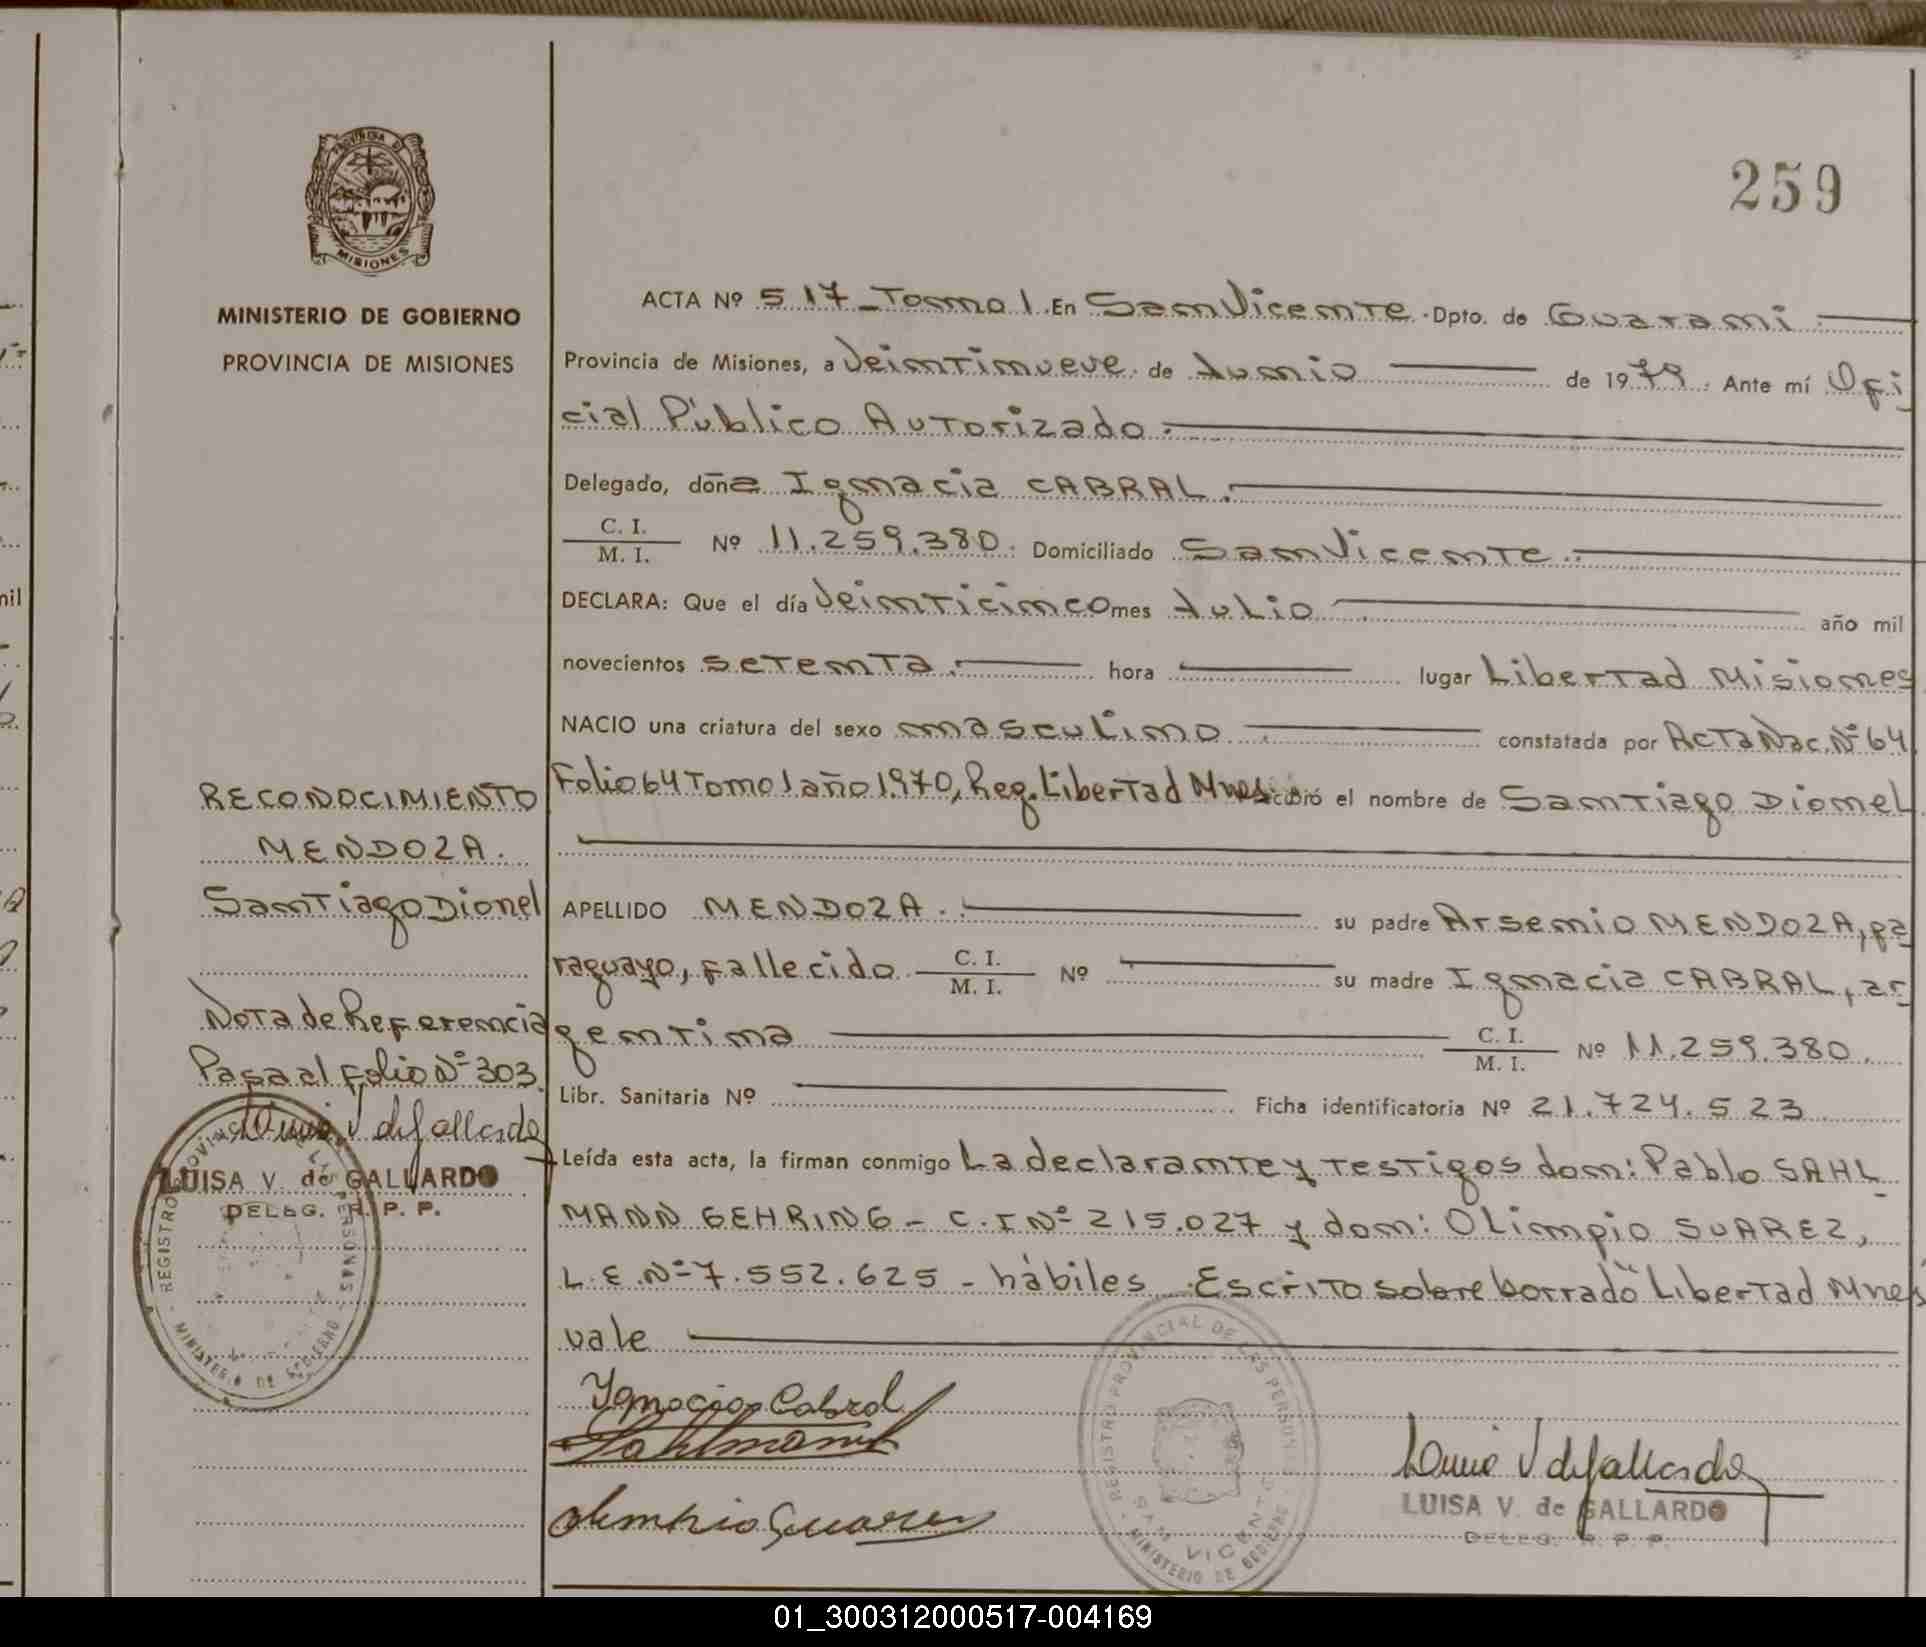 259
PROVINCIA DE
MISIONES
MINISTERIO DE GOBIERNO
PROVINCIA DE MISIONES
ACTA Nº 517 - Tomo 1. En San Vicente. Dpto. de Guaraní
Provincia de Misiones, a Veintinueve de Junio de 1979. Ante mí Ofi
cial Público Autorizado.
Delegado, doña Ignacia CABRAL.
C. I.
M. I. Nº 11.259.380. Domiciliado San Vicente.
DECLARA: Que el día Veinticinco mes Julio año mil
novecientos setenta. hora lugar Libertad Misiones
NACIO una criatura del sexo masculino constatada por Acta Nac. Nº 64
Folio 64 Tomo 1 año 1970, Reg. Libertad Mnes. recibió el nombre de Santiago Dionel
APELLIDO MENDOZA. su padre Arsenio MENDOZA, pa
raguayo, fallecido C. I.
M. I. Nº su madre Ignacia CABRAL, ar
gentina C. I.
M. I. Nº 11.259.380.
Libr. Sanitaria Nº Ficha identificatoria Nº 21.724.523
Leída esta acta, la firman conmigo La declarante y testigos don: Pablo SAHL
MANN GEHRING - C.I Nº 215.027 y don: Olimpio SUAREZ,
L.E. Nº 7.552.625 - hábiles. Escrito sobre borrado "Libertad Mnes"
vale
Ignacia Cabral
Sahlmann
Olimpio Suarez
REGISTRO PROVINCIAL DE LAS PERSONAS
SAN VICENTE
MINISTERIO DE GOBIERNO
Luisa V de Gallardo
LUISA V. de GALLARDO
DELEG. R. P. P.
RECONOCIMIENTO
MENDOZA.
Santiago Dionel
Nota de Referencia
Pasa al Folio Nº 303.
Luisa V de Gallardo
LUISA V. de GALLARDO
DELEG. R. P. P.
REGISTRO PROVINCIAL DE LAS PERSONAS
MINISTERIO DE GOBIERNO
mil
01_300312000517-004169